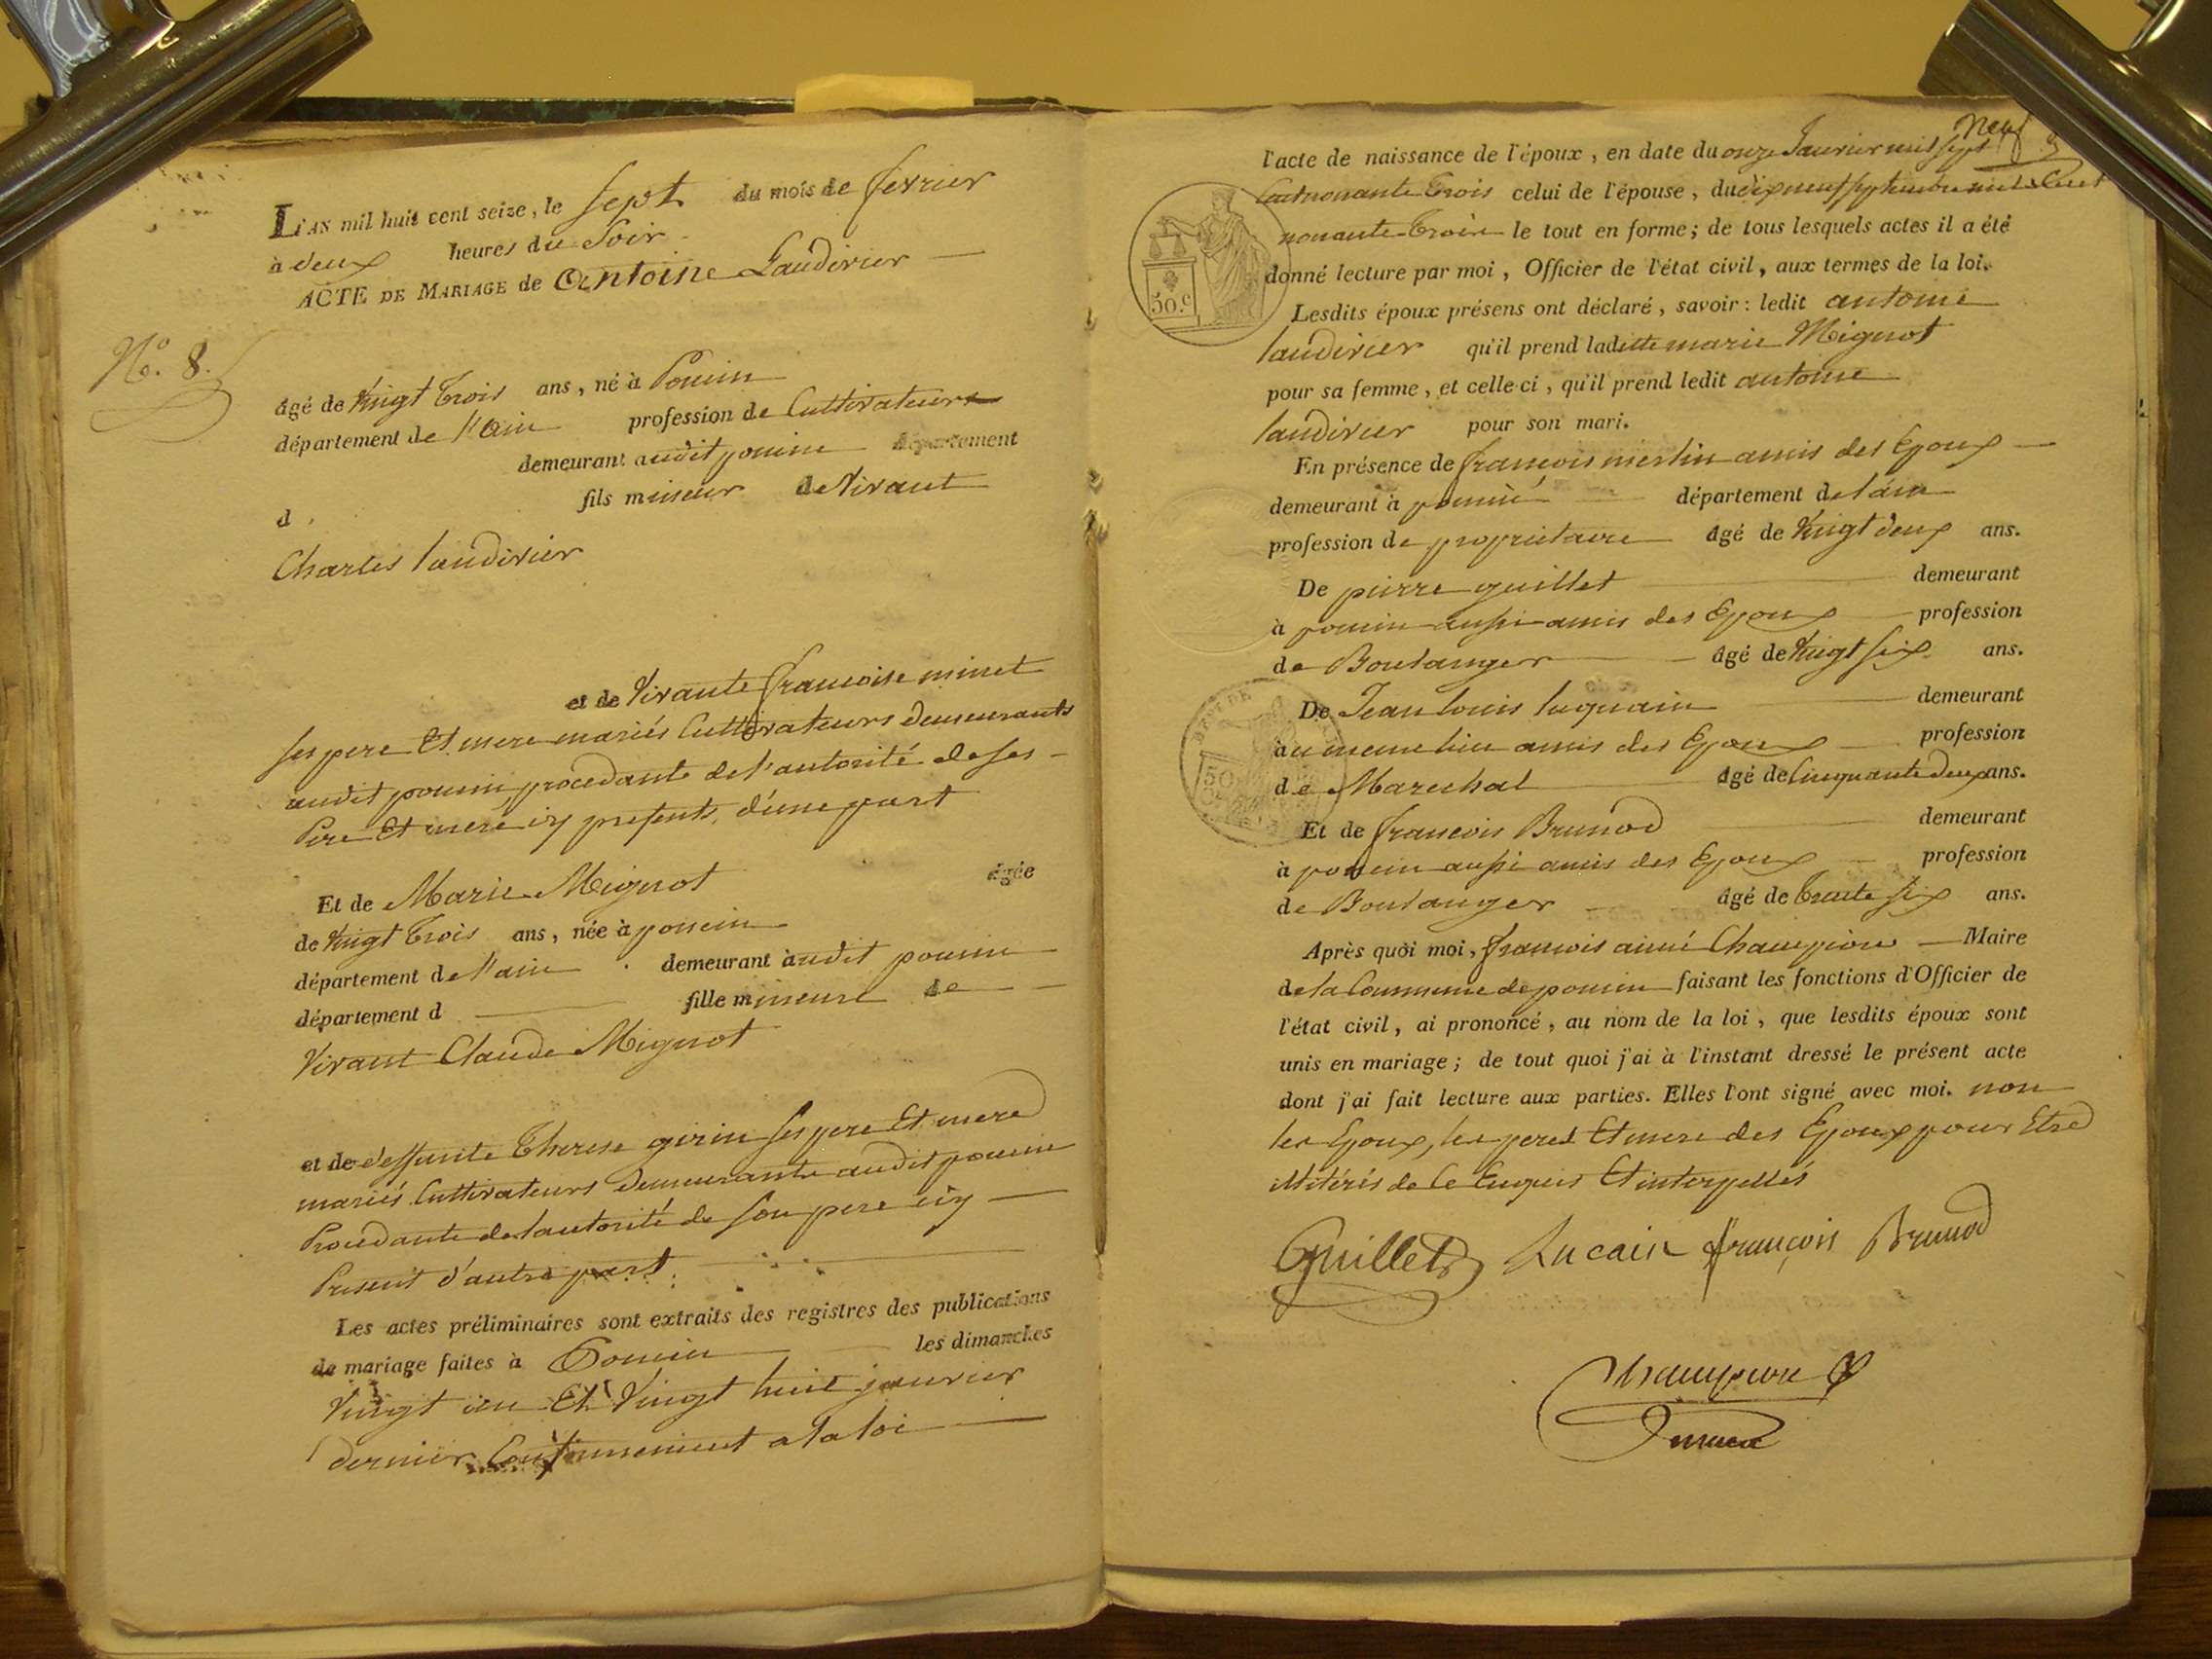 L'AN mil huit cent seize, le sept du mois de fevrier
à deux heures du Soir
ACTE DE MARIAGE de Antoine Laudivier
N.º 8.
âgé de vingt trois ans, né à Poncin
département de l'ain profession de Cultivateurs
demeurant audit poncin département
d fils mineur de vivant
Charles laudivier
et de vivante francoise minet
ses pere Et mere mariés Cultivateurs demeurants
audit poncin procedante de l'autorité de ses
Pere Et mere icy presents, d'une part
Et de Marie Mignot âgée
de vingt trois ans, née à poncin
département de l'ain demeurant audit poncin
département d fille mineure de
vivant Claude Mignot
et de deffunte Therese girin ses pere Et mere
mariés Cultivateurs demeurants audit poncin
Procedante de l'autorité de son pere icy
Present d'autre part
Les actes préliminaires sont extraits des registres des publications
de mariage faites à Poncin les dimanches
vingt un Et vingt huit janvier
dernier Conformement a la loi
neuf
l'acte de naissance de l'époux, en date du onze Janvier mil sept
Cent nonante trois celui de l'épouse, du dix neuf septembre mil sept Cent
nonante trois le tout en forme; de tous lesquels actes il a été
donné lecture par moi, Officier de l'état civil, aux termes de la loi.
50.c
Lesdits époux présens ont déclaré, savoir: ledit antoine
laudivier qu'il prend laditte marie Mignot
pour sa femme, et celle-ci, qu'il prend ledit antoine
laudivier pour son mari.
En présence de francois merlin amis des Epoux
demeurant à poncin département de l'ain
profession de proprietaire âgé de vingt deux ans.
De pierre guillet demeurant
à poncin aussi amis des Epoux profession
de Boulanger âgé de vingt six ans.
De Jean louis luquain demeurant
au meme lieu amis des Epoux profession
de Marechal âgé de Cinquante deux ans.
Et de francois Brunod demeurant
à poncin aussi amis des Epoux profession
de Boulanger âgé de trente six ans.
Après quoi moi, francois aimé Champion Maire
de la Commune de poncin faisant les fonctions d'Officier de
l'état civil, ai prononcé, au nom de la loi, que lesdits époux sont
unis en mariage; de tout quoi j'ai à l'instant dressé le présent acte
dont j'ai fait lecture aux parties. Elles l'ont signé avec moi. non
les Epoux, les peres Et mere des Epoux pour Etre
illitérés de Ce Enquis Et interpellés
Guillet Lucain françois Brunod
Champion